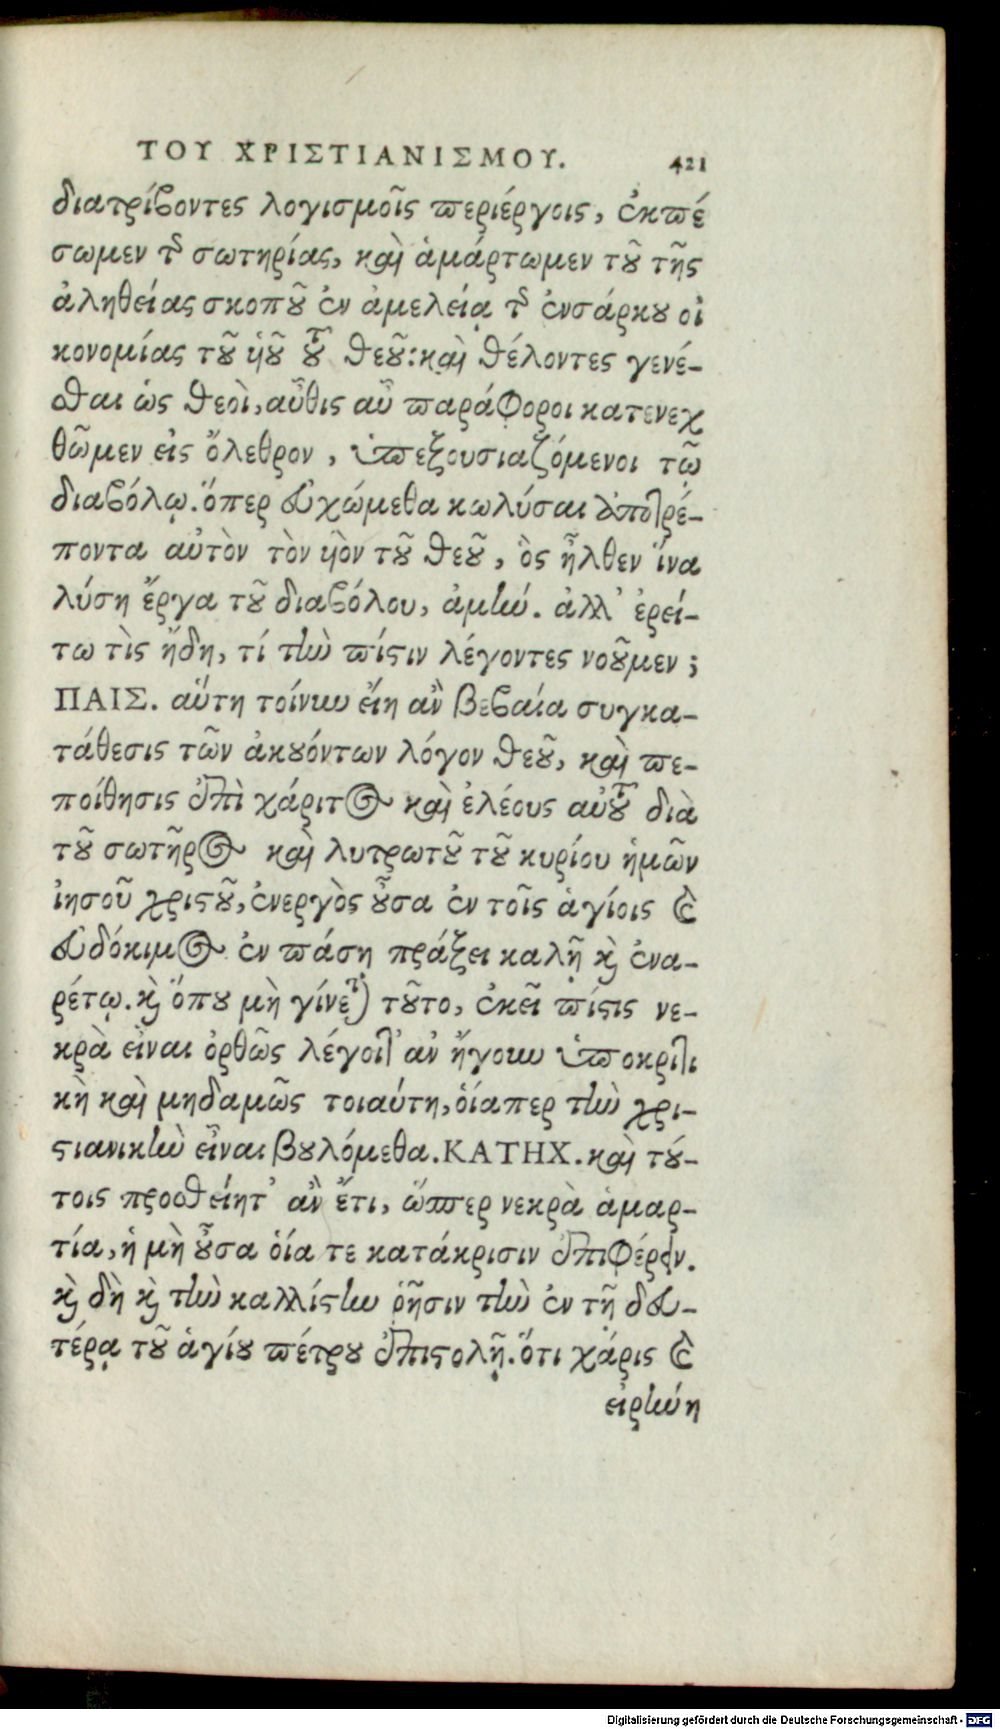 ΤΟΥ ΧΡΙΣΤΙΑΝΙΣΜΟΥ. 421
διατρίβοντες λογισμοῖς περιέργοις, ἐκπέ
σωμεν τῆς σωτηρίας, καὶ ἁμάρτωμεν τοῦ τῆς
ἀληθείας σκοποῦ ἐν ἀμελείᾳ τῆς ἐνσάρκου οἰ
κονομίας τοῦ υἱοῦ τοῦ θεοῦ: καὶ θέλοντες γενέ-
σθαι ὡς θεοὶ, αὖθις αὖ παράφοροι κατενεχ
θῶμεν εἰς ὄλεθρον, ὑπεξουσιαζόμενοι τῷ
διαβόλῳ. ὅπερ εὐχώμεθα κωλύσαι ἀποτρέ-
ποντα αὐτὸν τὸν υἱὸν τοῦ θεοῦ, ὃς ἦλθεν ἵνα
λύσῃ ἔργα τοῦ διαβόλου, ἀμήν. ἀλλ' ἐρεί-
τω τὶς ἤδη, τί τὴν πίστιν λέγοντες νοοῦμεν;
ΠΑΙΣ. αὕτη τοίνυν εἴη ἂν βεβαία συγκα-
τάθεσις τῶν ἀκουόντων λόγον θεοῦ, καὶ πε-
ποίθησις ἐπὶ χάριτος καὶ ἐλέους αὐτοῦ διὰ
τοῦ σωτῆρος καὶ λυτρωτοῦ τοῦ κυρίου ἡμῶν
ἰησοῦ χριστοῦ, ἐνεργὸς οὖσα ἐν τοῖς ἁγίοις καὶ
εὐδόκιμος ἐν πάσῃ πράξει καλῇ καὶ ἐνα-
ρέτῳ. καὶ ὅπου μὴ γίνεται τοῦτο, ἐκεῖ πίστις νε-
κρὰ εἶναι ὀρθῶς λέγοιτ' ἂν ἤγουν ὑποκριτι
κὴ καὶ μηδαμῶς τοιαύτη, οἵαπερ τὴν χρι-
στιανικὴν εἶναι βουλόμεθα. ΚΑΤΗΧ. καὶ τού-
τοις προσθείητ' ἂν ἔτι, ὥσπερ νεκρὰ ἁμαρ-
τία, ἡ μὴ οὖσα οἵα τε κατάκρισιν ἐπιφέρειν.
καὶ δὴ καὶ τὴν καλλίστην ῥῆσιν τὴν ἐν τῇ δευ-
τέρᾳ τοῦ ἁγίου πέτρου ἐπιστολῇ. ὅτι χάρις καὶ
εἰρήνη
Digitalisierung gefördert durch die Deutsche Forschungsgemeinschaft - DFG